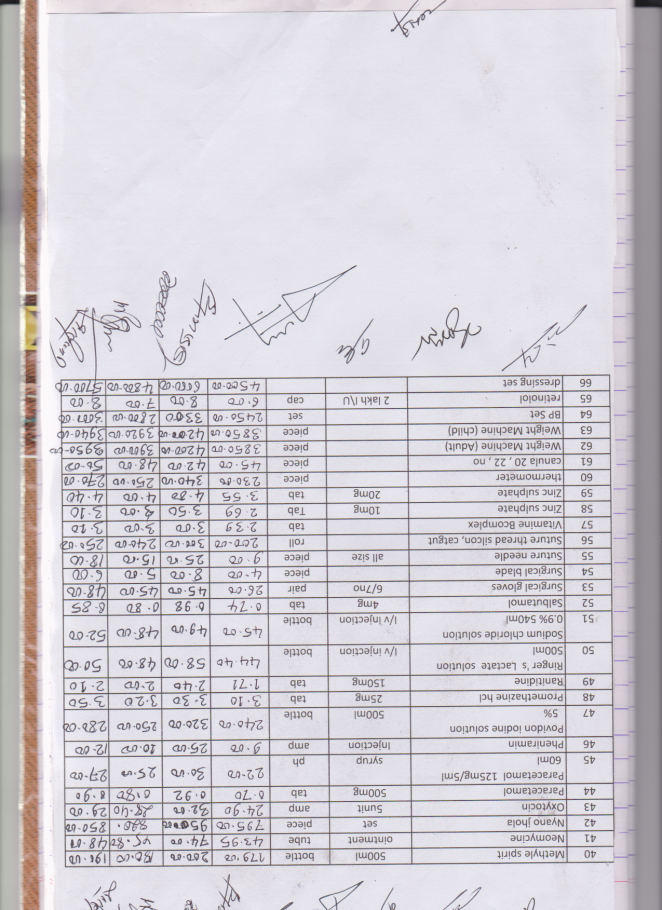 40 Methyle spirit 500ml bottle 179.00 200.00 180.00 190.00
41 Neomycine ointment tube 43.95 74.00 45.80 48.00
42 Nyano jhola set piece 795.00 950.00 820. 850.00
43 Oxytocin 5unit amp 24.90 32.00 28.40 29.00
44 Paracetamol 500mg tab 0.70 0.92 0.80 0.90
45 Paracetamol 125mg/5ml
60ml syrup ph 22.00 30.00 25.00 27.00
46 Pheniramin Injection amp 9.00 25.00 10.00 12.00
47 Povidon iodine solution
5% 500ml bottle 240.00 320.00 250.00 280.00
48 Promethazine hcl 25mg tab 3.10 3.30 3.20 3.50
49 Ranitidine 150mg tab 1.71 2.40 2.00 2.10
50 Ringer 's Lactate solution
500ml I/v injection bottle 44.40 58.00 48.00 50.00
51 Sodium chloride solution
0.9% 540ml I/v injection bottle 45.00 49.00 48.00 52.00
52 Salbutamol 4mg tab 0.74 0.98 0.80 0.85
53 Surgical gloves 6/7no pair 26.00 45.00 45.00 48.00
54 Surgical blade piece 4.00 8.00 5.00 6.00
55 Suture needle all size piece 9.00 25.00 15.00 18.00
56 Suture thread silcon, catgut roll 200.00 300.00 240.00 250.00
57 Vitamine Bcomplex tab 2.39 3.00 3.00 3.10
58 Zinc sulphate 10mg Tab 2.69 3.50 3.00 3.10
59 Zinc sulphate 20mg tab 3.55 4.80 4.00 4.40
60 thermometer piece 230.00 340.00 250.00 270.00
61 canula 20 , 22 , no piece 45.00 42.00 48.00 56.00
62 Weight Machine (Adult) piece 3850.00 4200.00 3900.00 3950.00
63 Weight Machine (child) piece 3850.00 4200.00 3920.00 3940.00
64 BP Set set 2450.00 3300 2800.00 3000.00
65 retinolol 2 lakh I\U cap 6.00 8.00 7.00 8.00
66 dressing set 4500.00 6000.00 4800.00 5700.00